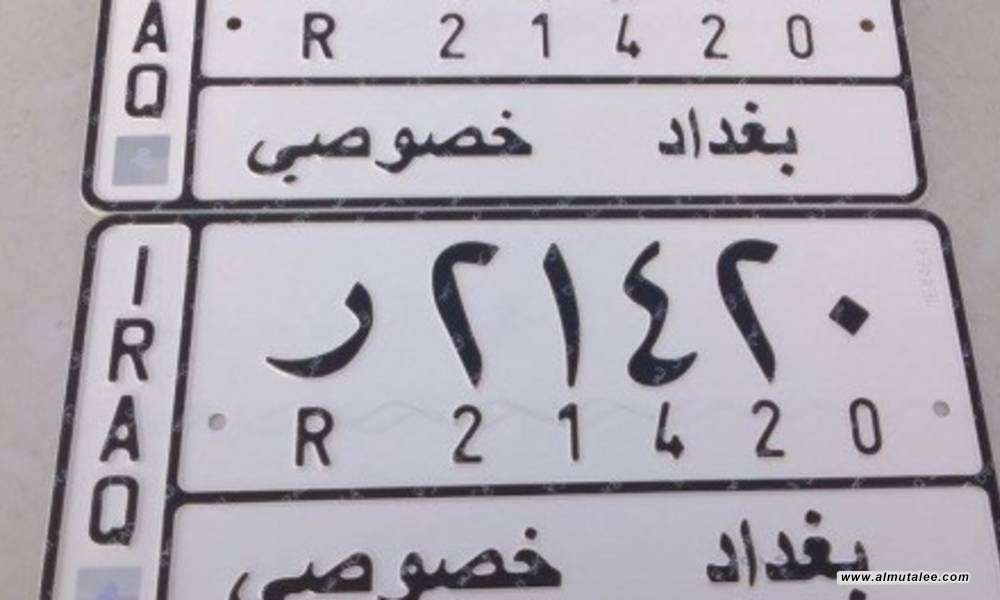 AQ
R 2 1 4 2 0
بغداد خصوصي
IRAQ
ر ٢١٤٢٠
R 2 1 4 2 0
بغداد خصوصي
www.almutalee.com